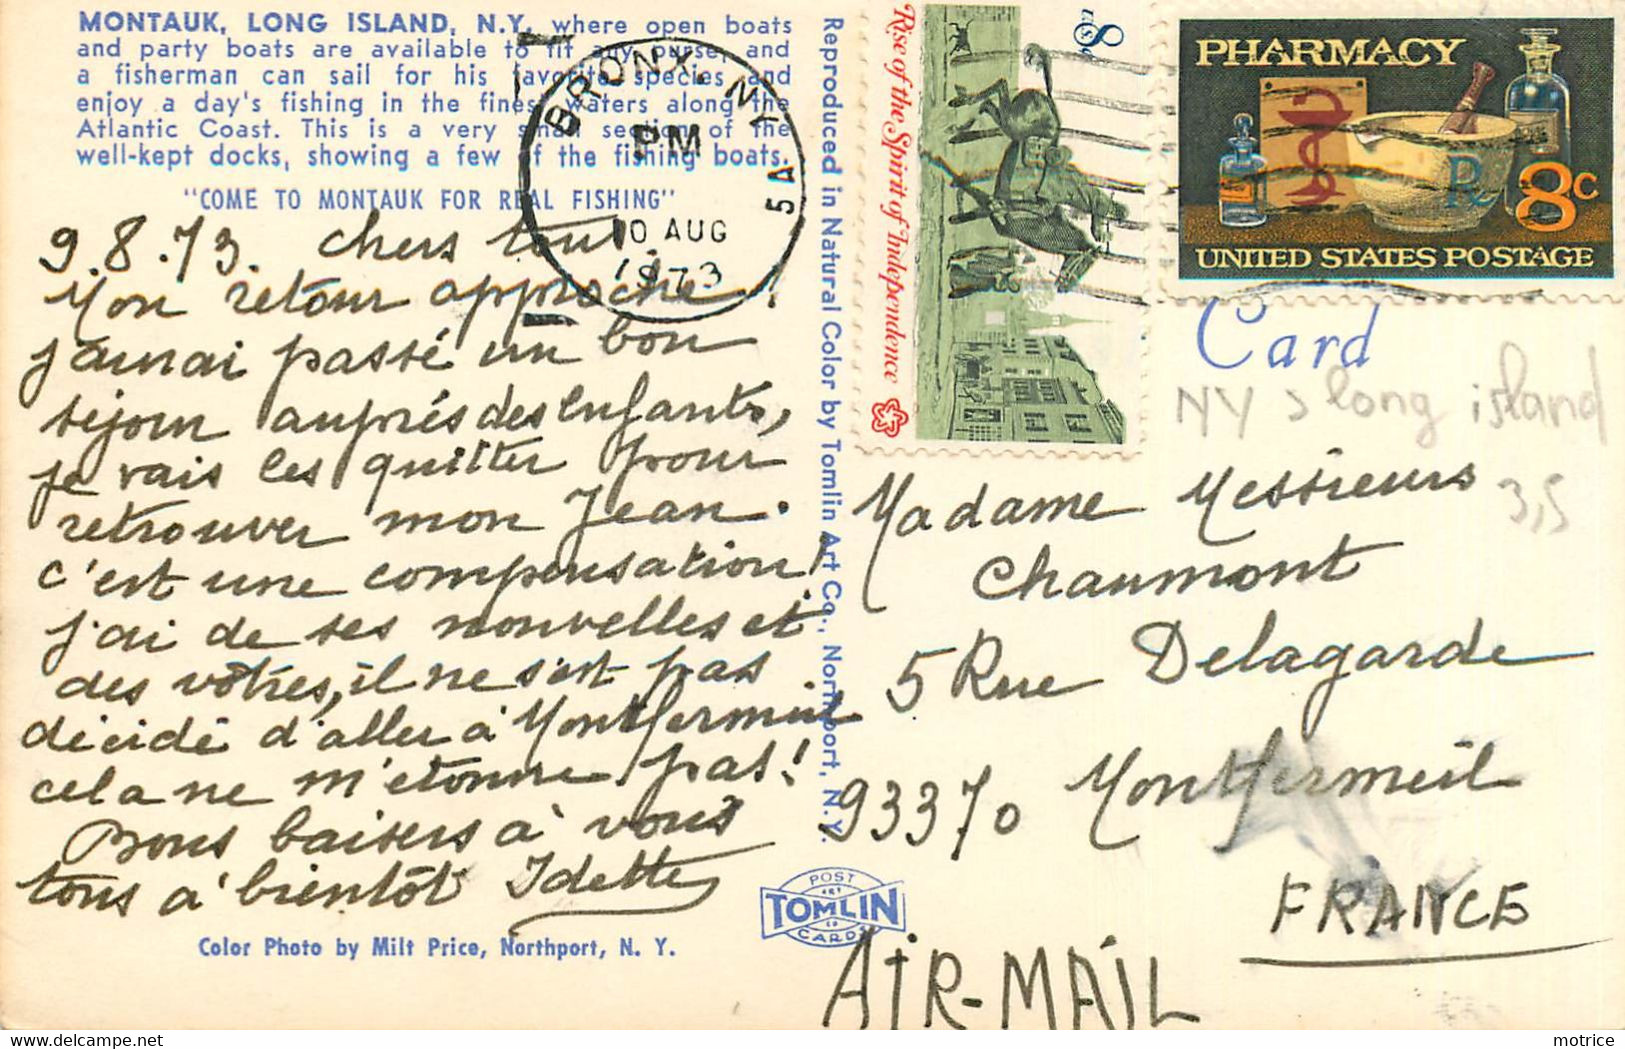 MONTAUK, LONG ISLAND, N.Y. where open boats
and party boats are available to fit any purse, and
a fisherman can sail for his favorite species and
enjoy a day's fishing in the finest waters along the
Atlantic Coast. This is a very small section of the
well-kept docks, showing a few of the fishing boats.
"COME TO MONTAUK FOR REAL FISHING"
9.8.73. chers tous
Mon retour approche!
j'aurai passé un bon
séjour auprés des Enfants,
je vais les quitter pour
retrouver mon Jean.
c'est une compensation!
j'ai de ses nouvelles et
des vôtres, il ne s'est pas
décidé d'aller à Montfermeil
cela ne m'etonne pas!
Bons baisers à vous
tous a' bientôt Idette
Color Photo by Milt Price, Northport, N. Y.
BRONX, NY
PM
10 AUG
1973
5A
Reproduced in Natural Color by Tomlin Art Co., Northport, N. Y.
POST
ART
TOMLIN
CO
CARDS
Rise of the Spirit of Independence
8c
U.S.
PHARMACY
R
8c
UNITED STATES POSTAGE
Card
NY > long island
3,5
Madame Messieurs
Chaumont
5 Rue Delagarde
93370 Montfermeil
FRANCE
AIR-MAIL
motrice